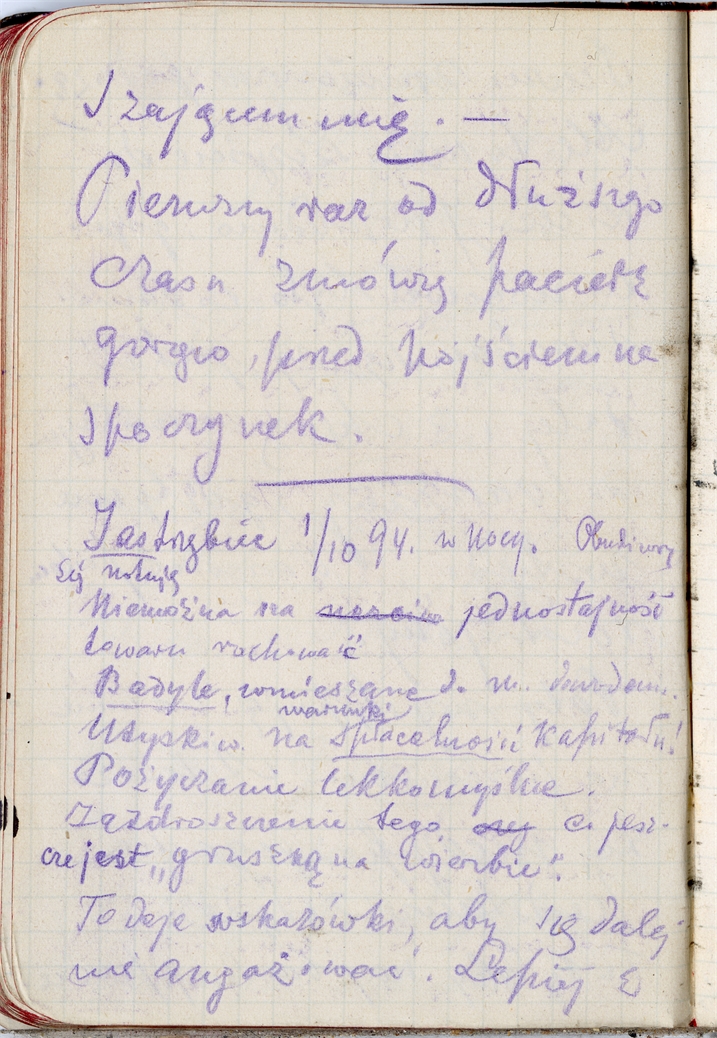 I zająłem się. —
Pierwszy raz od dłuższego
czasu zmówię pacierz
gorąco, przed pójściem na
spoczynek.
Jastrzębiec 1/10 94. w nocy. Obudziwszy
się notuję
Niemożna na jednostajność
towaru rachować
Badyle, wmieszane do
warunki
Utyskiw. na spłacalności kapitału!
Pożyczanie lekkomyślne.
Zazdroszczenie tego, co jesz-
cze jest „gruszką na wierbie".
To daje wskazówki, aby się dalej
nie angażować. Lepiej z